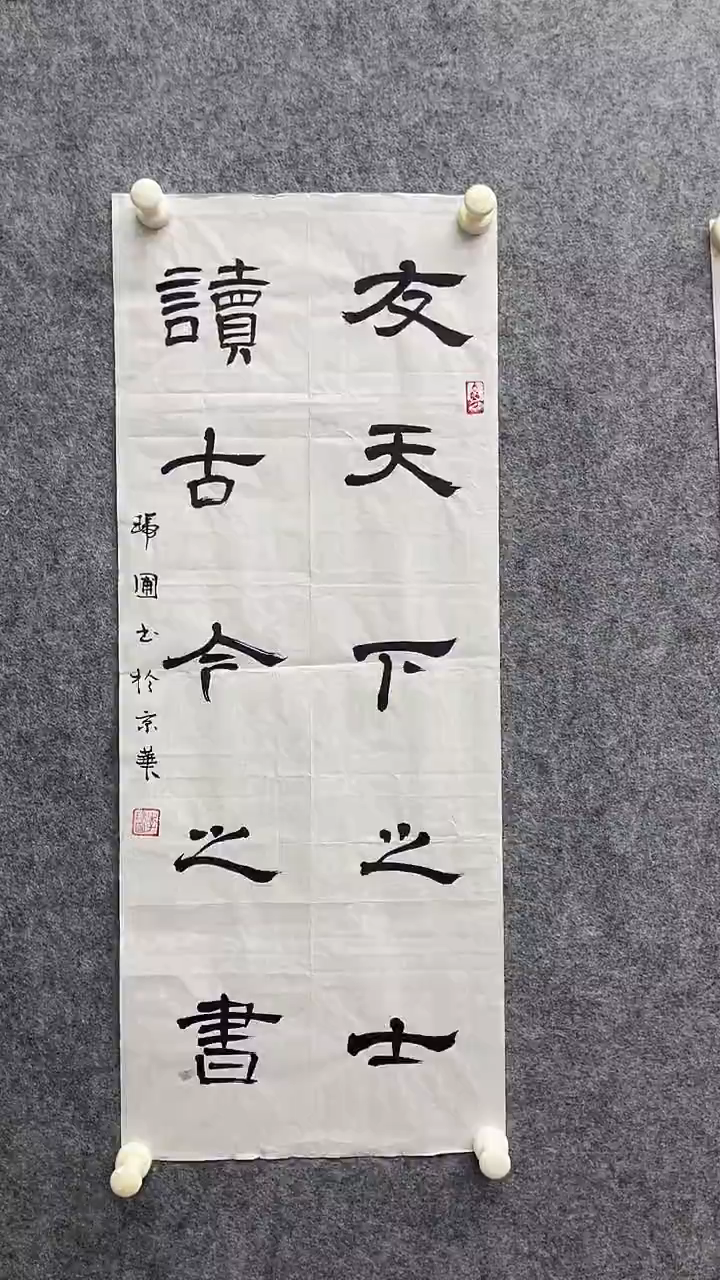 友天下之士
讀古今之書
圃书於京華